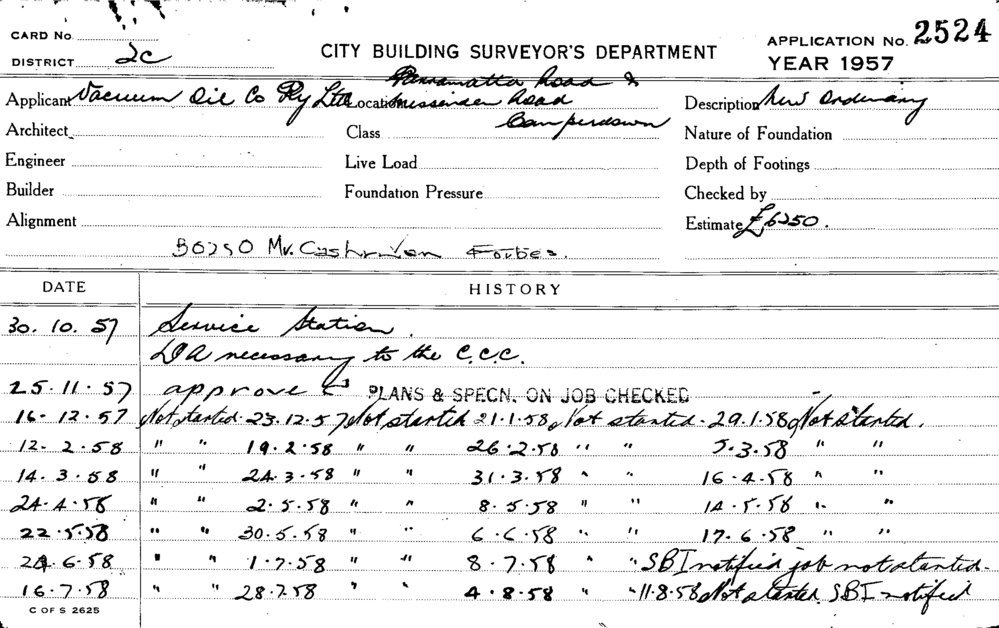 CARD No.
DISTRICT 2c
CITY BUILDING SURVEYOR'S DEPARTMENT
APPLICATION No. 2524
YEAR 1957
Applicant Vacuum Oil Co Pty Ltd Location Parramatta Road & Missenden Road Camperdown Description New Ordinary
Architect Class Nature of Foundation
Engineer Live Load Depth of Footings
Builder Foundation Pressure Checked by
Alignment Estimate £6250.
B0250 Mr. Forbes.
DATE HISTORY
30. 10. 57 Service Station.
DA necessary to the C.C.C.
25.11.57 approved PLANS & SPECN. ON JOB CHECKED
16.12.57 Not started 23.12.57 Not started 21.1.58 Not started 29.1.58 Not started.
12. 2.58 " " 19.2.58 " " 26.2.58 " " 5.3.58 " "
14. 3. 58 " " 24.3.58 " " 31.3.58 " " 16.4.58 " "
24.4.58 " " 2.5.58 " " 8.5.58 " " 14.5.58 " "
22.5.58 " " 30.5.58 " " 6.6.58 " " 17.6.58 " "
24.6.58 " " 1.7.58 " " 8.7.58 " " SBI notified job not started.
16.7.58 " " 28.7.58 " " 4.8.58 " " 11.8.58 Not started. SBI notified
C OF S 2625